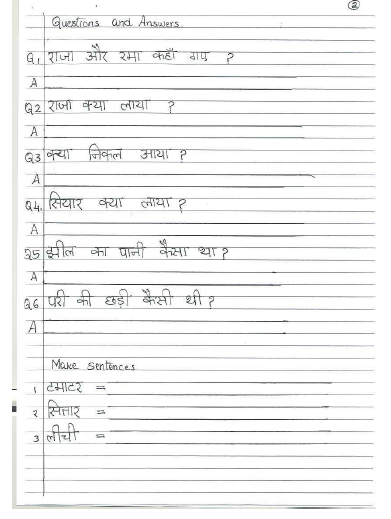 2
Questions and Answers.
Q1 राजा और रमा कहाँ गए ?
A
Q2 राजा क्या लाया ?
A
Q3 क्या निकल आया ?
A
Q4. सियार क्या लाया ?
A
Q5 झील का पानी कैसा था ?
A
Q6 परी की छड़ी कैसी थी ?
A
Make sentences
1 टमाटर =
2 सितार =
3 लीची =